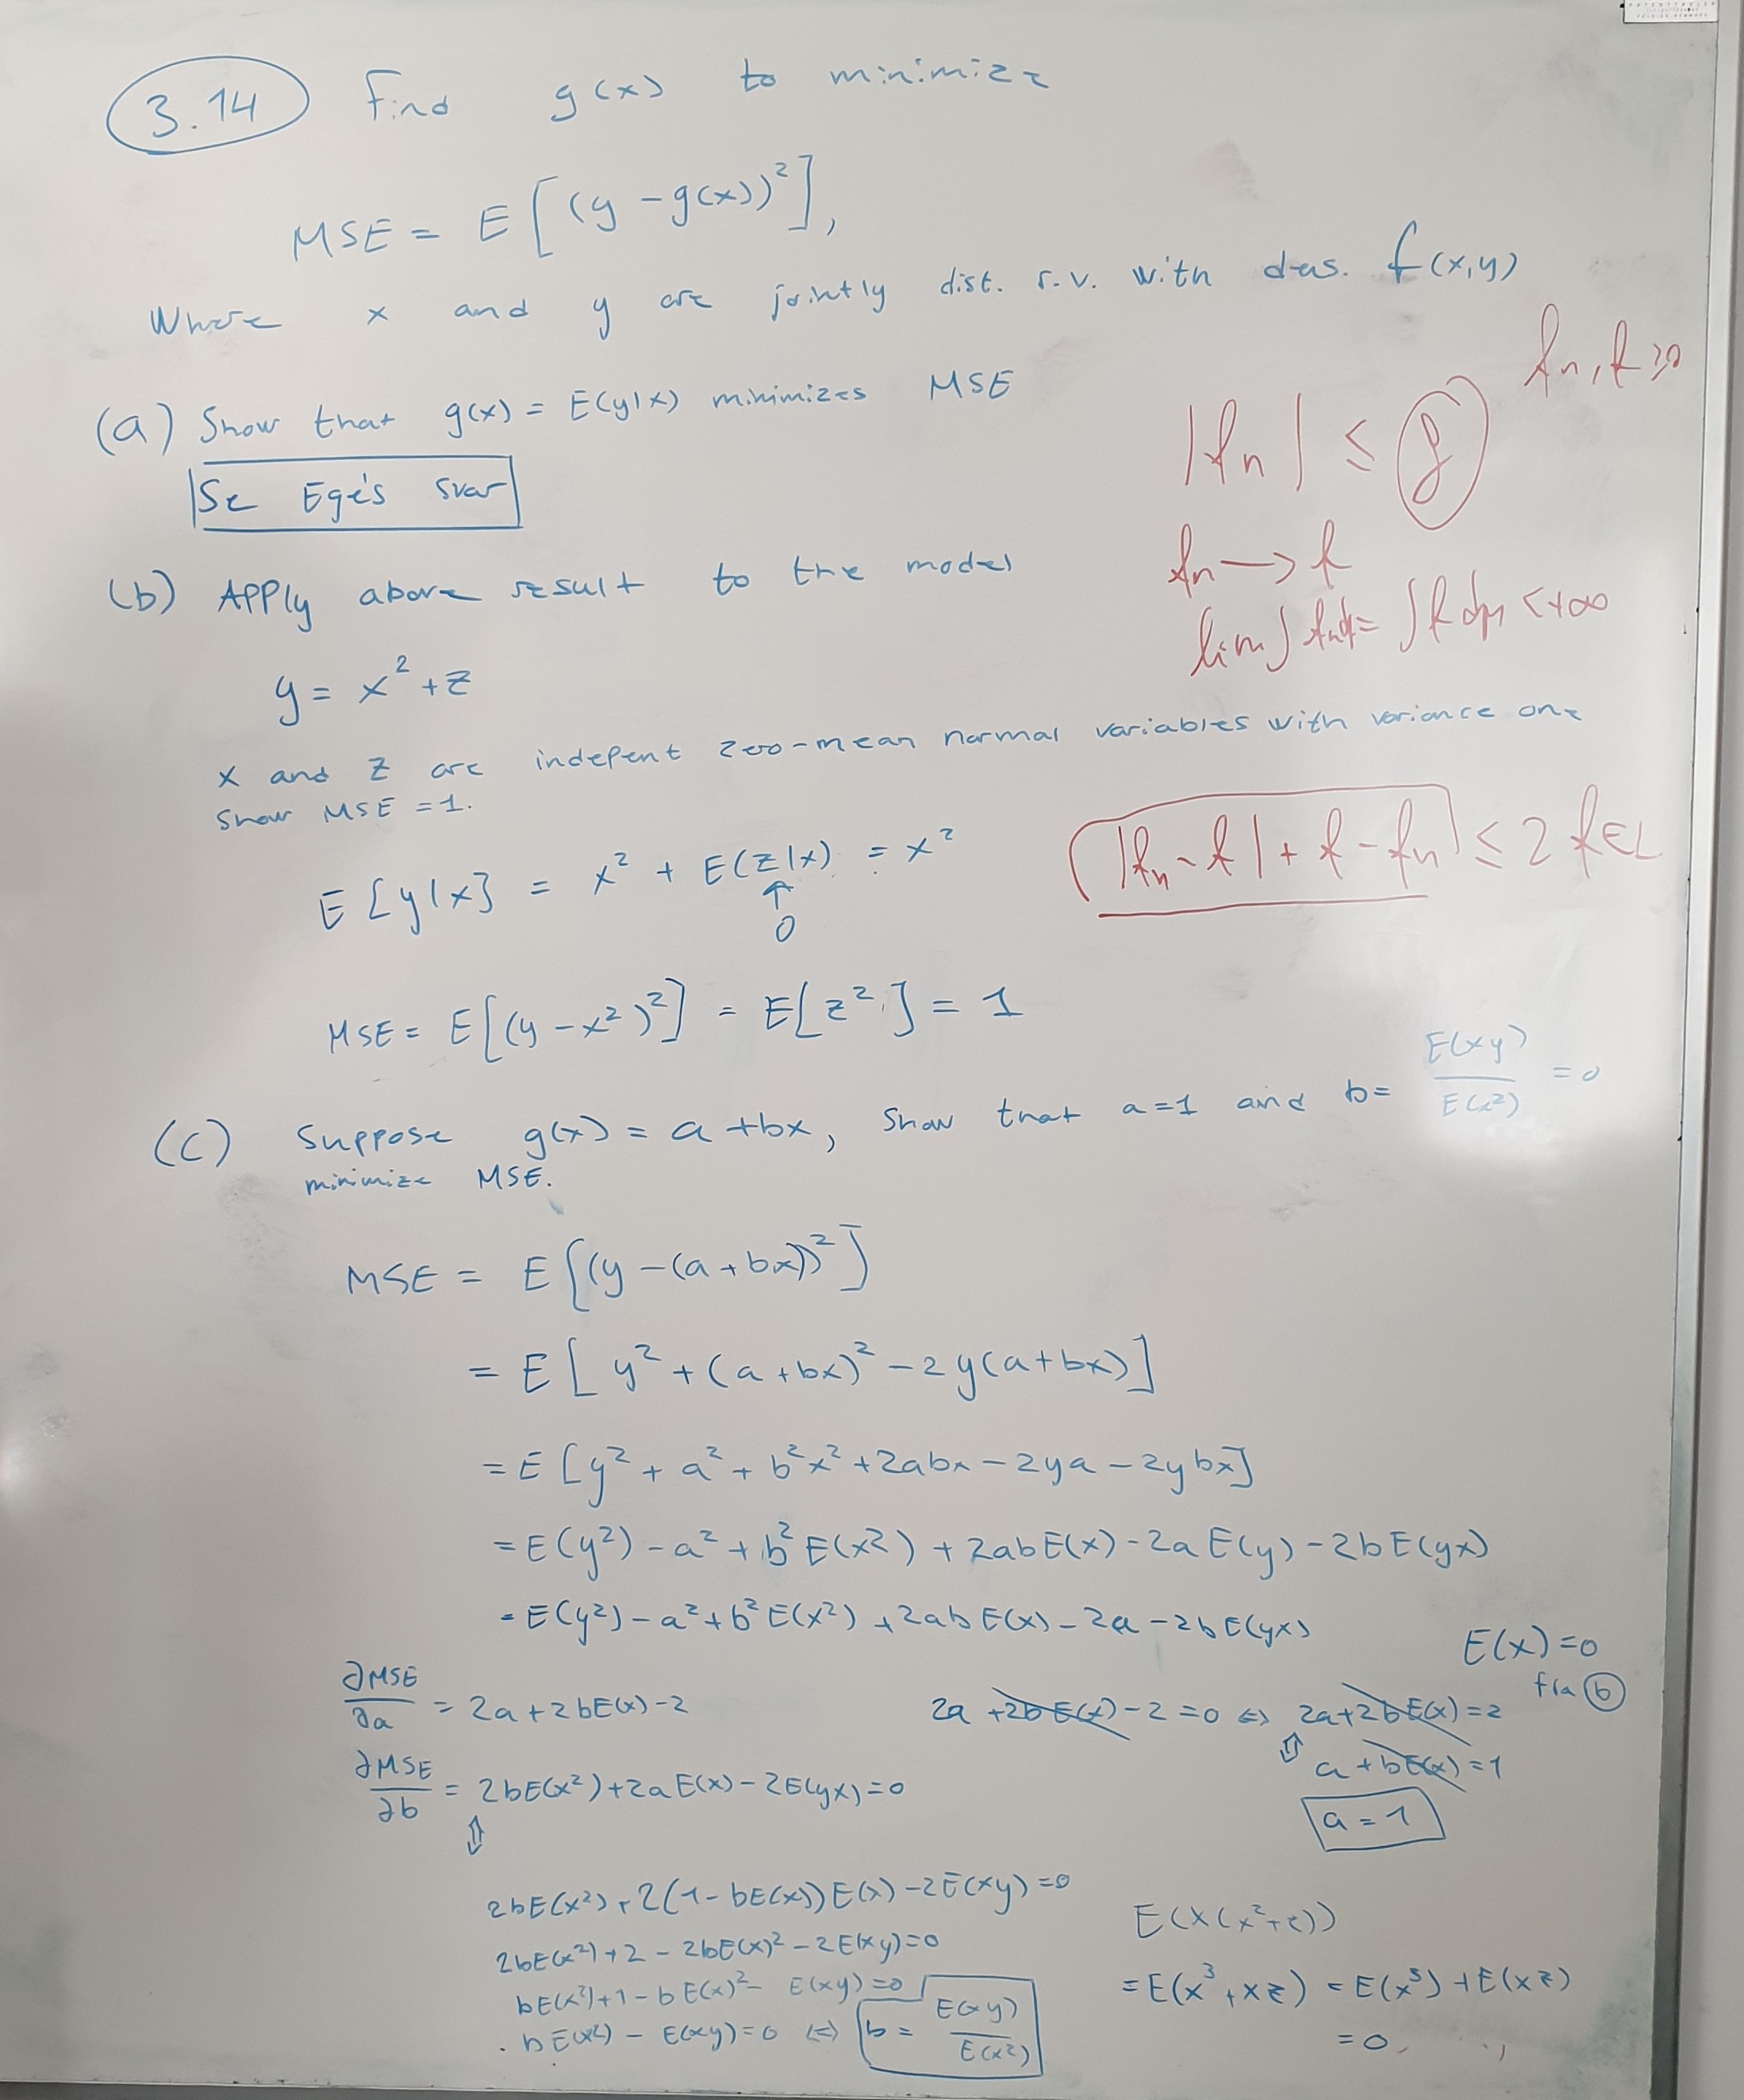 3.14 Find g(x) to minimize
MSE = E[(y - g(x))²],
Where x and y are jointly dist. r.v. with des. f(x,y)
(a) Show that g(x) = E(y|x) minimizes MSE
Se Ege's svar
fn, f ≥ 0
|fn| ≤ g
fn → f
lim ∫ fn dμ = ∫ f dμ < +∞
(b) Apply above result to the model
y = x² + z
x and z are indepent zero-mean normal variables with variance one
Show MSE = 1.
|fn - f| + f - fn ≤ 2f ∈ L
E[y|x] = x² + E(z|x) = x²
↑
0
MSE = E[(y - x²)²] = E[z²] = 1
(c) Suppose g(x) = a + bx, Show that a=1 and b = E(xy)/E(x²) = 0
minimize MSE.
MSE = E[(y - (a + bx))²]
= E[y² + (a + bx)² - 2y(a + bx)]
= E[y² + a² + b²x² + 2abx - 2ya - 2ybx]
= E(y²) - a² + b²E(x²) + 2abE(x) - 2aE(y) - 2bE(yx)
= E(y²) - a² + b²E(x²) + 2abE(x) - 2a - 2bE(yx)
E(x) = 0
fra (b)
∂MSE/∂a = 2a + 2bE(x) - 2
2a + 2bE(x) - 2 = 0 ⇔ 2a + 2bE(x) = 2
⇕
a + bE(x) = 1
a = 1
∂MSE/∂b = 2bE(x²) + 2aE(x) - 2E(yx) = 0
⇕
2bE(x²) + 2(1 - bE(x))E(x) - 2E(xy) = 0
2bE(x²) + 2 - 2bE(x)² - 2E(xy) = 0
bE(x²) + 1 - bE(x)² - E(xy) = 0
bE(x²) - E(xy) = 0 ⇔ b = E(xy)/E(x²)
E(x(x² + z))
= E(x³ + xz) = E(x³) + E(xz)
= 0